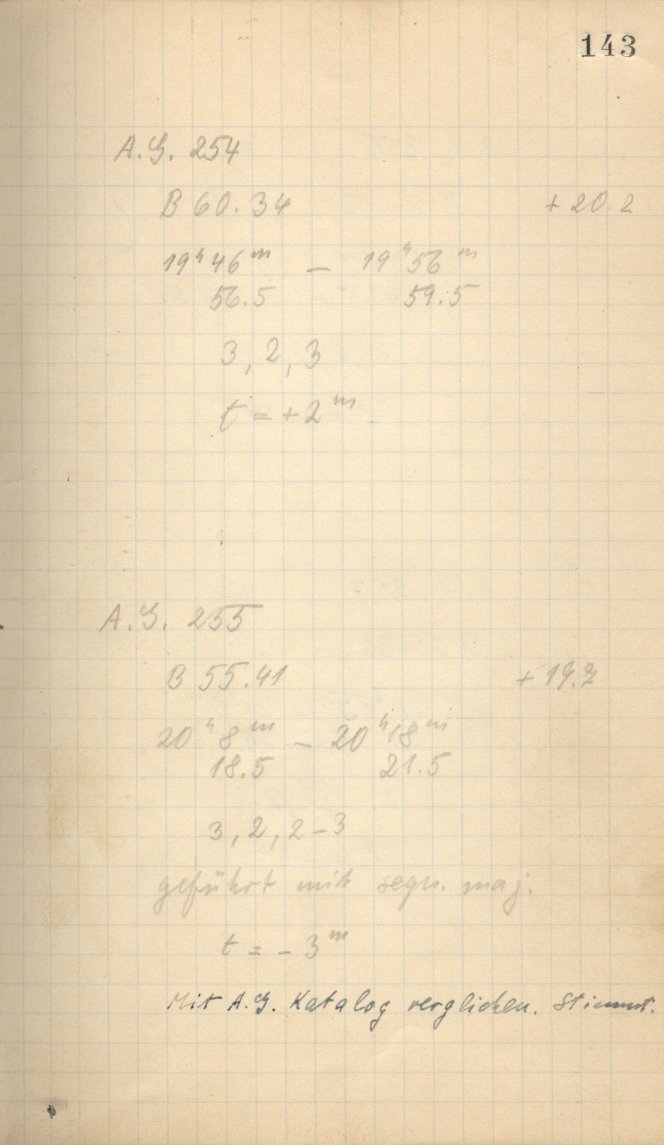 143
A.G. 254
B 60.34 + 20.2
19ʰ 46ᵐ – 19ʰ 56ᵐ
56.5 59.5
3, 2, 3
t = + 2ᵐ
A.G. 255
B 55.41 + 19.2
20ʰ 8ᵐ – 20ʰ 18ᵐ
18.5 21.5
3, 2, 2–3
geführt mit sequ. maj.
t = – 3ᵐ
Mit A.G. Katalog verglichen. Stimmt.